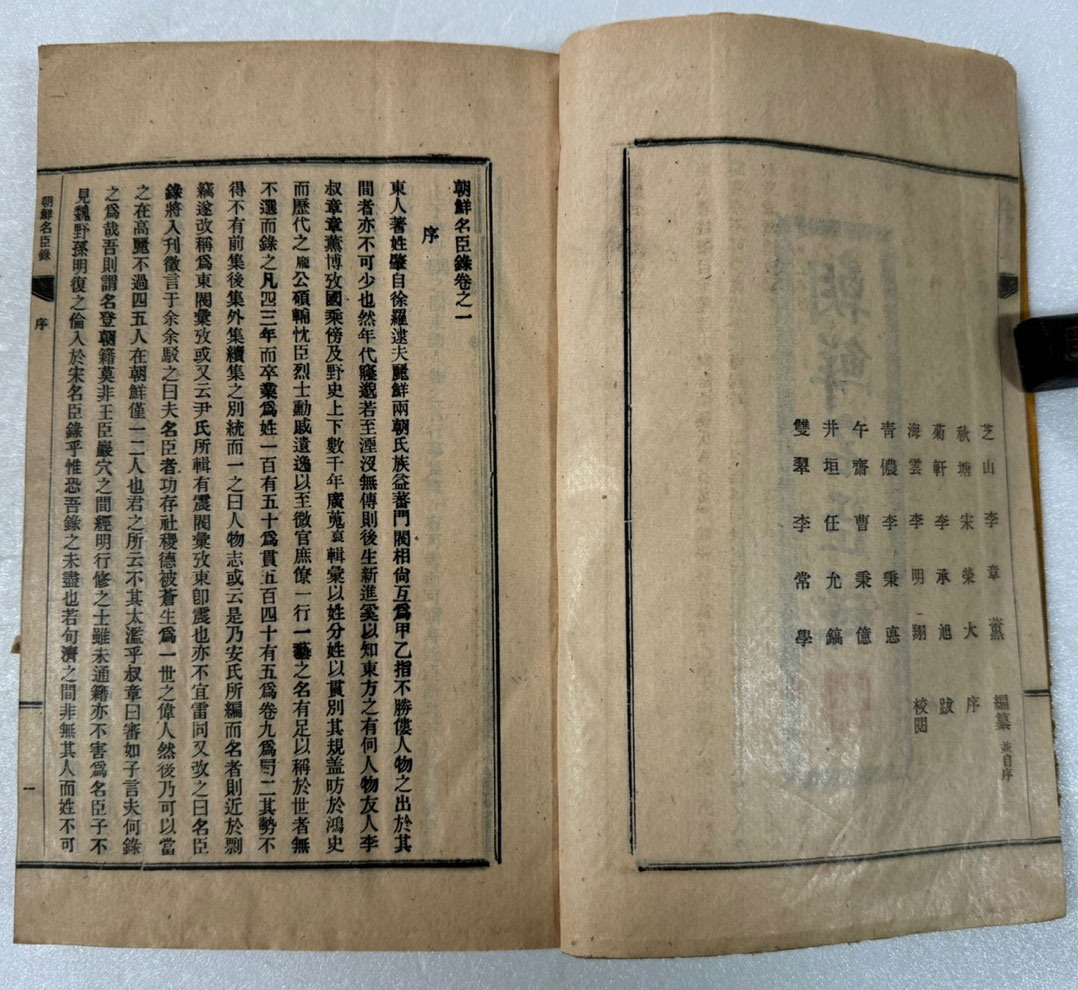 芝山 李章薰 編纂 並自序
秋塘 宋榮大 序
菊軒 李承旭 跋
海雲 李明翔 校閱
青儂 李秉悳
午齋 曹秉億
井垣 任允鎬
雙翠 李常學
朝鮮名臣錄卷之一
序
東人著姓肇自徐羅逮夫麗鮮兩朝氏族益蕃門閥相尙互爲甲乙指不勝僂人物之出於其
間者亦不可少也然年代寢邈若至湮沒無傳則後生新進奚以知東方之有何人物友人李
叔章章薰博攷國乘傍及野史上下數千年廣蒐裒輯彙以姓分姓以貫別其規盖昉於鴻史
而歷代之龐公碩輔忱臣烈士勳戚遺逸以至微官庶僚一行一藝之名有足以稱於世者無
不選而錄之凡四三年而卒業爲姓一百有五十爲貫五百四十有五爲卷九爲冏二其勢不
得不有前集後集外集續集之別統而一之曰人物志或云是乃安氏所編而名者則近於剽
竊遂改稱爲東閣彙攷或又云尹氏所輯有震閣彙攷東卽震也亦不宜雷同又改之曰名臣
錄將入刊徵言于余余駁之曰夫名臣者功存社稷德被蒼生爲一世之偉人然後乃可以當
之在高麗不過四五人在朝鮮僅一二人也君之所云不其太濫乎叔章曰審如子言夫何錄
之爲哉吾則謂名登朝籍莫非王臣巖穴之間經明行修之士雖未通籍亦不害爲名臣子不
見魏野孫明復之倫入於宋名臣錄乎惟恐吾錄之未盡也若句濟之間非無其人而姓不可
朝鮮名臣錄 序 一